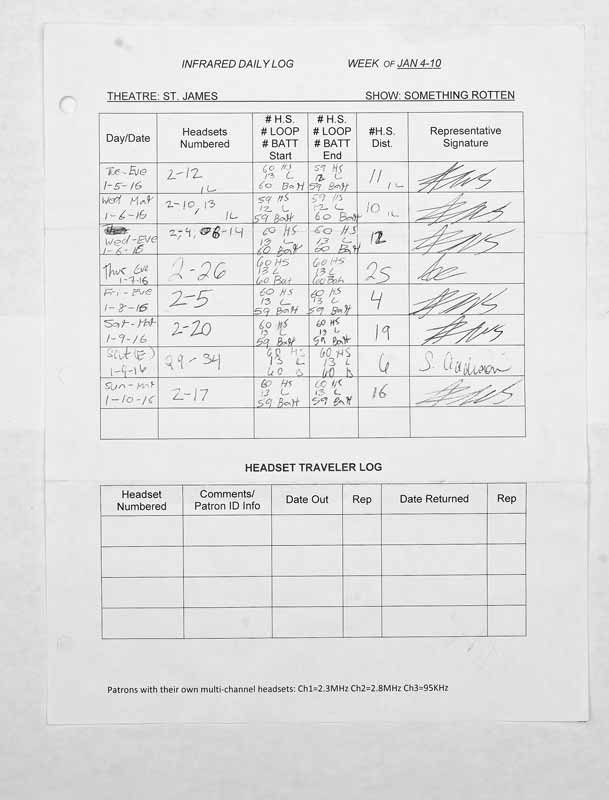 INFRARED DAILY LOG WEEK OF JAN 4-10
THEATRE: ST. JAMES SHOW: SOMETHING ROTTEN
Day/Date
Headsets
Numbered
# H.S.
# LOOP
# BATT
Start
# H.S.
# LOOP
# BATT
End
#H.S.
Dist.
Representative
Signature
Tue-Eve
1-5-16
2-12
1L
60 HS
13 L
60 Batt
59 HS
12 L
59 Batt
11 1L
Wed Mat
1-6-16
2-10, 13
1L
59 HS
12 L
59 Batt
59 HS
12 L
60 Batt
10 1L
Wed-Eve
1-6-16
2,4, 8-14
60 HS
13 L
60 Batt
60 HS
13 L
60 Batt
12
Thur Eve
1-7-16
2-26
60 HS
13 L
60 Bat
60 HS
13 L
60 Bat
25
Fri-Eve
1-8-16
2-5
60 HS
13 L
59 Batt
60 HS
13 L
59 Batt
4
Sat-Mat
1-9-16
2-20
60 HS
13 L
59 Batt
60 HS
13 L
59 Batt
19
Sat(E)
1-9-16
29-34
60 HS
13 L
60 B
60 HS
13 L
60 B
6
S. Addison
Sun-Mat
1-10-16
2-17
60 HS
13 L
59 Batt
60 HS
13 L
59 Batt
16
HEADSET TRAVELER LOG
Headset
Numbered
Comments/
Patron ID Info
Date Out
Rep
Date Returned
Rep
Patrons with their own multi-channel headsets: Ch1=2.3MHz Ch2=2.8MHz Ch3=95KHz